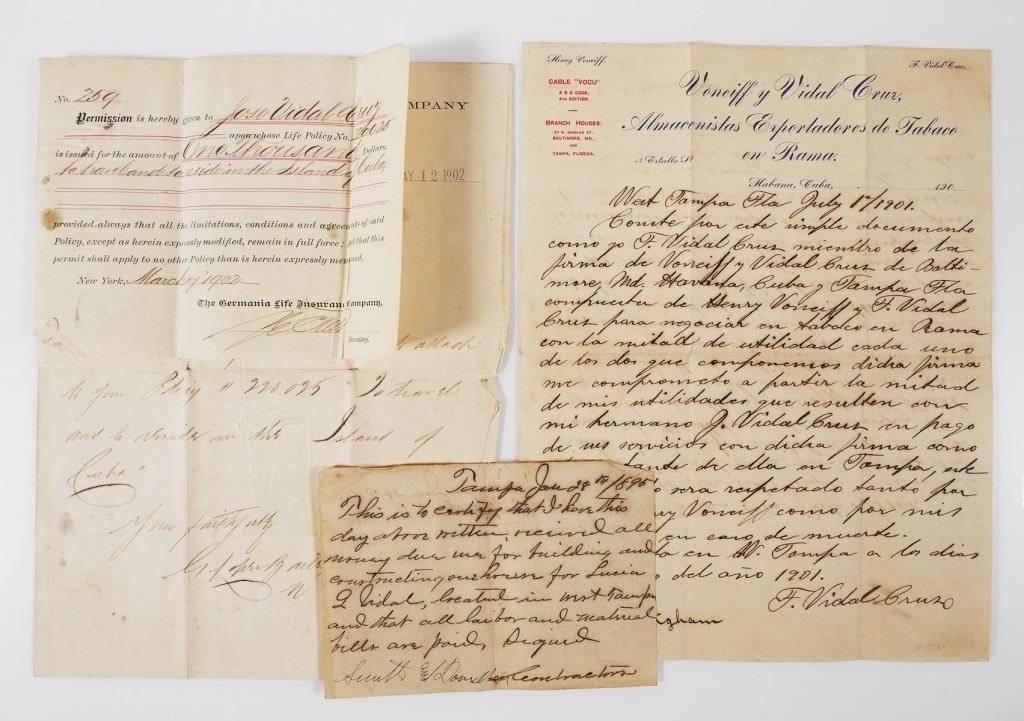 No. 259
Permission is hereby given to Jose Vidal Cruz
upon whose Life Policy No.
is issued for the amount of One Thousand Dollars,
to travel and to reside in the Island of Cuba,
provided always that all the limitations, conditions and agreements of said
Policy, except as herein expressly modified, remain in full force; that this
permit shall apply to no other Policy than is herein expressly
New York, March 1902
The Germania Life Insurance Company,
Secretary.
OMPANY
AY 12 1902
attach
to your Policy # 220095 "To travel
and to reside in the Island of
Cuba"
Your faithfully
Tampa Jan 28th 1895
This is to certify that I have this
day above written, recieved all
money due me for building and
constructing one house for Lucia
Q Vidal, located in west Tampa
and that all laibor and material
bills are paid, Signed
Smith & Contractors
Henry Vonciff.
F. Vidal Cruz.
CABLE "VOCU"
A B C CODE,
4TH EDITION.
BRANCH HOUSES:
BALTIMORE, MD.,
AND
TAMPA, FLORIDA.
Vonciff y Vidal Cruz,
Almacenistas Exportadores de Tabaco
en Rama.
Estrella St
Habana, Cuba, 190
West Tampa Fla July 1º/1901.
Conste por este simple documento
como yo F. Vidal Cruz miembro de la
firma de Vonciff y Vidal Cruz de Balti-
more, Md, Havana, Cuba y Tampa Fla
compuesta de Henry Vonciff y F. Vidal
Cruz para negociar en tabaco en Rama
con la mitad de utilidad cada uno
de los dos que componemos dicha firma
me comprometo a partir la mitad
de mis utilidades que resulten con
mi hermano J. Vidal Cruz en pago
de sus servicios con dicha firma como
tante de ella en Tampa, este
sera respetado tanto por
ry Vonciff como por mis
en caso de muerte.
en W. Tampa a los dias
del año 1901.
F. Vidal Cruz
gham